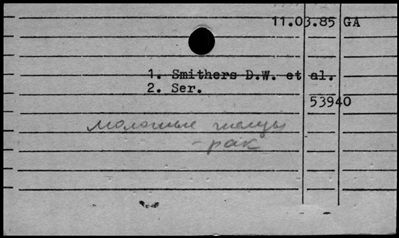 11.03.85 GA
1. Smithers D.W. et al.
2. Ser.
53940
молочные железы
- рак